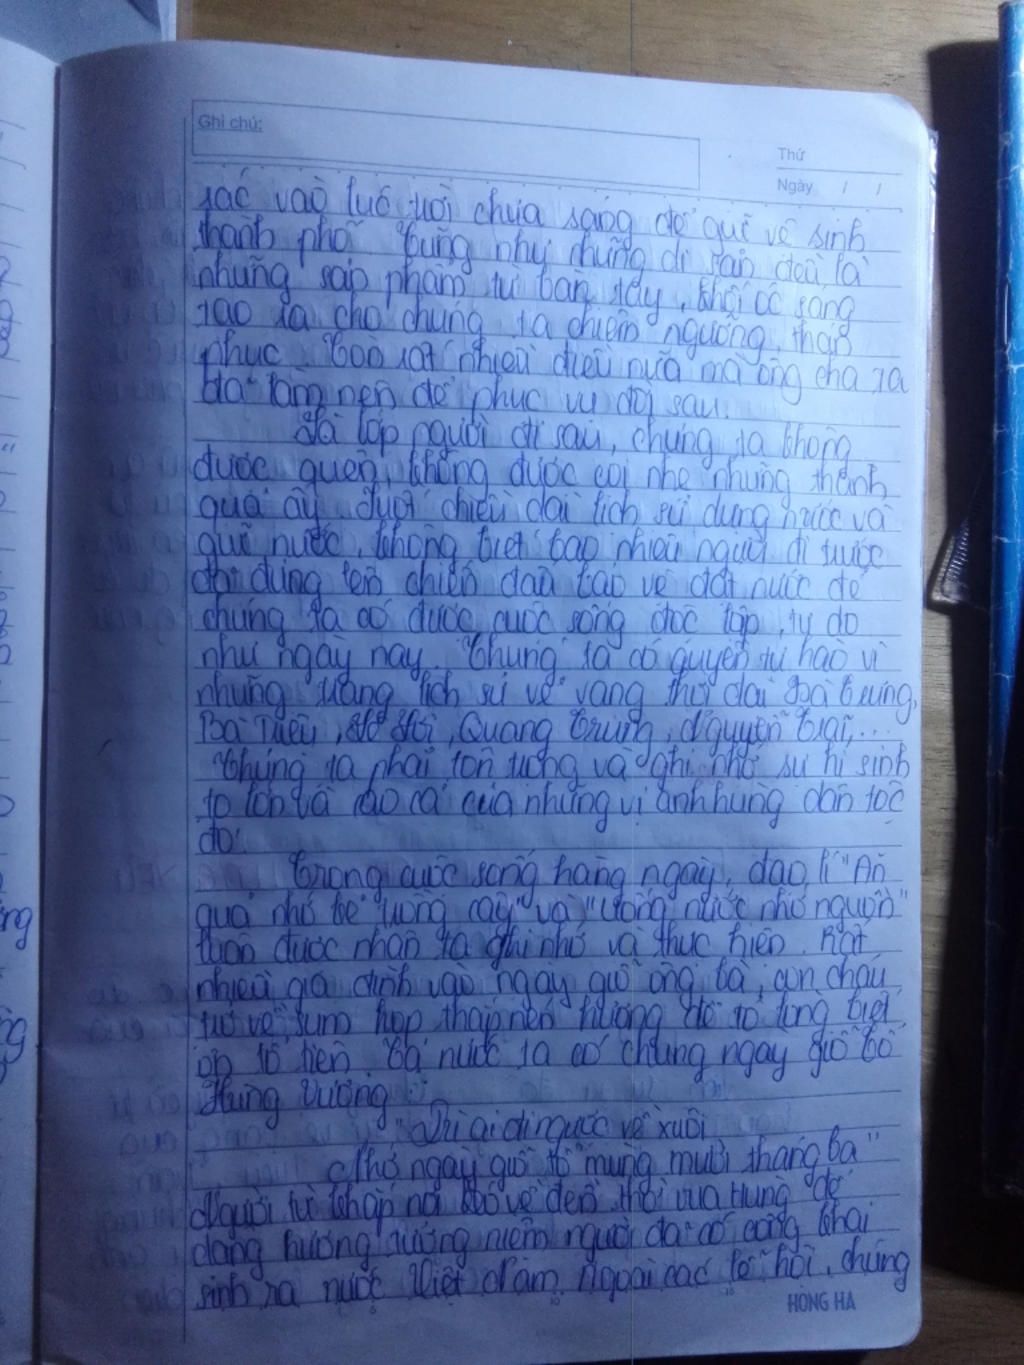 Ghi chú:
Thứ
Ngày / /
rác vào lúc trời chưa sáng để giữ vệ sinh
thành phố. Cũng như những di sản đều là
những sản phẩm từ bàn tay, khối óc sáng
tạo ra cho chúng ta chiêm ngưỡng, thán
phục. Còn rất nhiều điều nữa mà ông cha ta
đã làm nên để phục vụ đời sau.
Là lớp người đi sau, chúng ta không
được quên, không được coi nhẹ những thành
quả ấy. Suốt chiều dài lịch sử dựng nước và
giữ nước, không biết bao nhiêu người đi trước
đã đứng lên chiến đấu bảo vệ đất nước để
chúng ta có được cuộc sống độc lập, tự do
như ngày nay. Chúng ta có quyền tự hào vì
những trang lịch sử vẻ vang thời đại Bà Trưng,
Bà Triệu, Lê Lợi, Quang Trung, Nguyễn Trãi,...
Chúng ta phải tôn trọng và ghi nhớ sự hi sinh
to lớn và cao cả của những vị anh hùng dân tộc
đó.
Trong cuộc sống hàng ngày, đạo lí "Ăn
quả nhớ kẻ trồng cây" và "Uống nước nhớ nguồn"
luôn được nhân ta ghi nhớ và thực hiện. Rất
nhiều gia đình vào ngày giỗ ông bà, con cháu
tụ về sum họp thắp nén hương để tỏ lòng biết
ơn tổ tiên. Cả nước ta có chung ngày giỗ Tổ
Hùng Vương:
"Dù ai đi ngược về xuôi
Nhớ ngày giỗ tổ mùng mười tháng ba"
Người từ khắp nơi đổ về đền thờ vua Hùng để
dâng hương tưởng niệm người đã có công khai
sinh ra nước Việt Nam. Ngoài các lễ hội, chúng
HỒNG HÀ